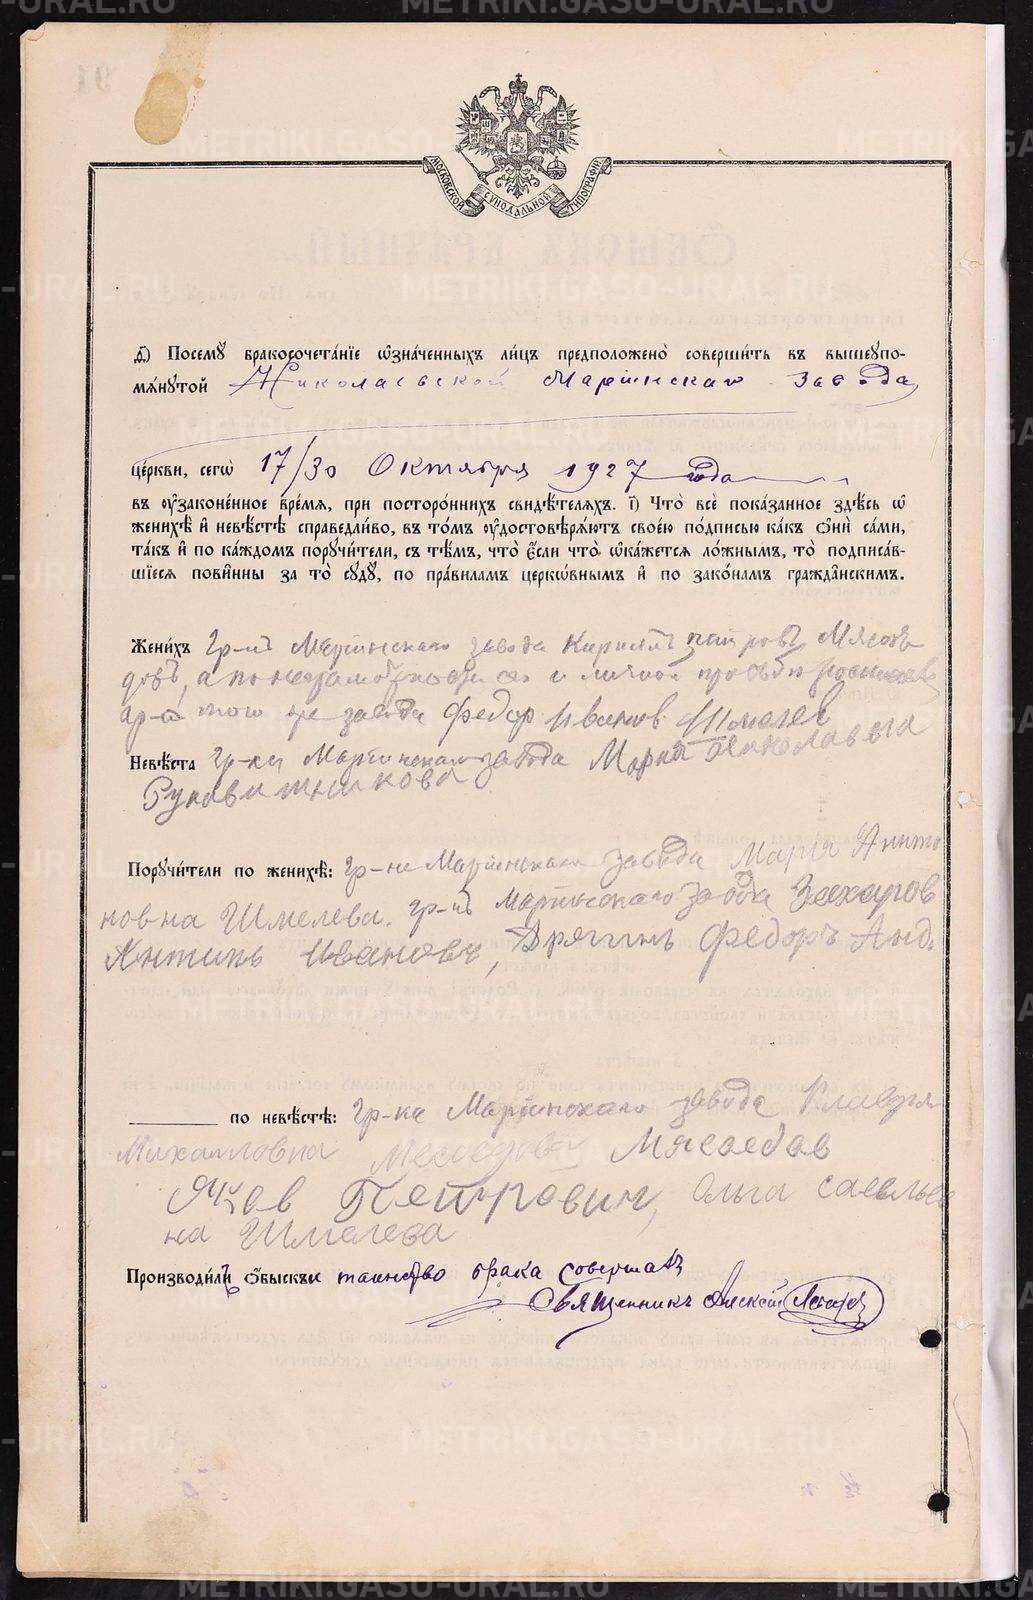 МОСКОВСКОЙ СѴНОДАЛЬНОЙ ТИПОГРАФІИ
д҃) Посемꙋ̀ бракосочета́нїе ѡ҆зна́ченныхъ ли́цъ предположено̀ соверши́ть въ вышеꙋпо-
мѧ́нꙋтой Николаевской Маріинскаго завода
це́ркви, сегѡ̀ 17/30 Октября 1927 года
въ ᲂу҆зако́не́нное вре́мѧ, при посторо́ннихъ свидѣ́телѧхъ. і҃) Что̀ всѐ пока́занное здѣ́сь ѡ҆
женихѣ̀ и҆ невѣ́стѣ справедли́во, въ то́мъ ᲂу҆достовѣрѧ́ютъ свое́ю по́дписью ка́къ ѻ҆нѝ са́ми,
та́къ и҆ по ка́ждомъ порꙋчи́тели, съ тѣ́мъ, что̀ є҆́сли что̀ ѡ҆ка́жетсѧ ло́жнымъ, то̀ подписа́в-
шїесѧ пови́нны за то̀ сꙋдꙋ̀, по пра́виламъ церкѡ́внымъ и҆ по зако́намъ гражда́нскимъ.
Жени́хъ Гр-нъ Маріинскаго завода Кирилъ Петровъ Мясоѣ-
довъ, а по неграмотности его и личной просьбе росписался
гр-нъ того же завода Федор Иванов Шмелев
Невѣ́ста Гр-ка Маріинскаго завода Марія Николаевна
Рукавишникова
Порꙋчи́тели по женихѣ̀: Гр-не Маріинскаго завода Марія Анто
новна Шмелева. гр-нъ Маріинскаго завода Захаров
Антипъ Ивановъ, Дрягинъ Федоръ Анд.
по невѣ́стѣ: Гр-ка Маріинскаго завода Клавдія
Михаиловна Мясоедов
Яков Петрович, Ольга Савелье
на Шмелева
Производи́лъ ѻ҆́быскъ и таинство брака совершалъ
Священникъ Алексѣй
METRIKI.GASO-URAL.RU